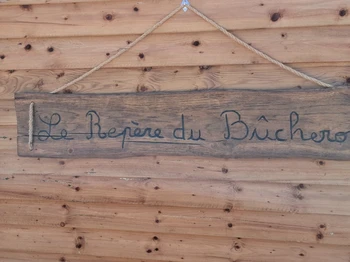 Le Repère du Bûchero